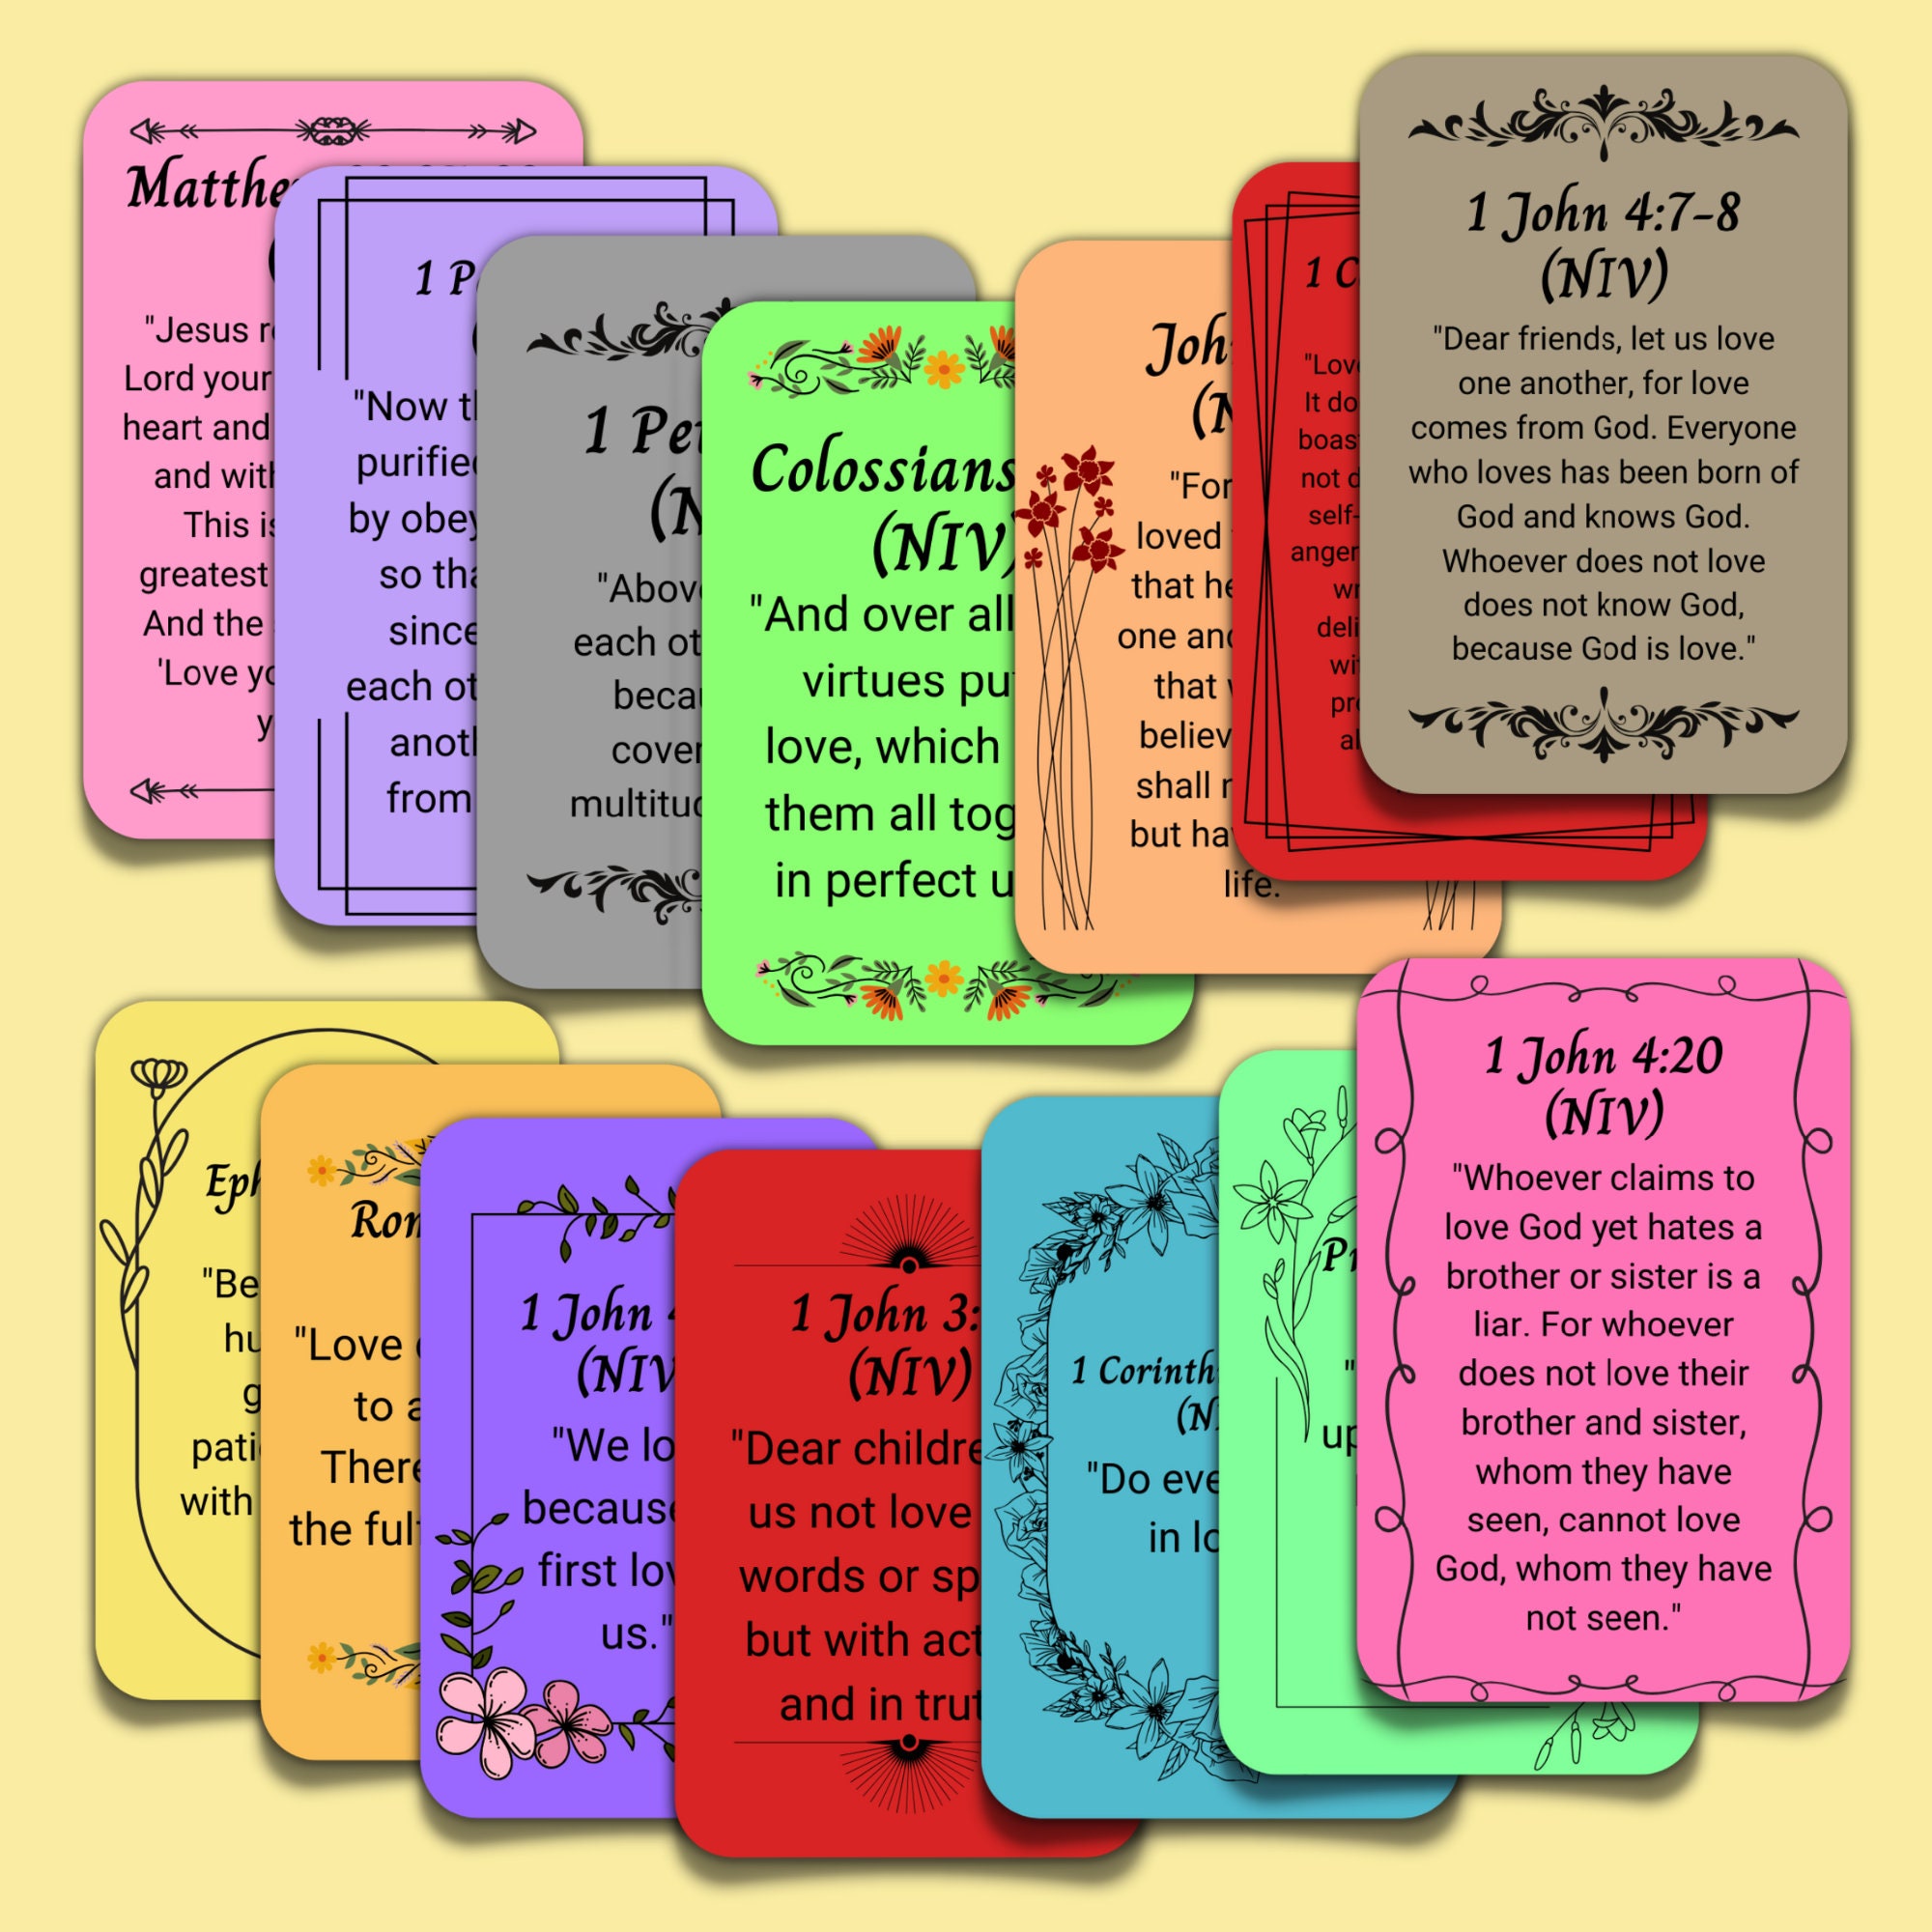 Matthe
"Jesus re
Lord your
heart and
and with
This is
greatest
And the
'Love yo
y
1 P
"Now th
purified
by obey
so tha
since
each ot
anoth
from
1 Pet
(N
"Above
each ot
becau
cover
multitud
Colossians
(NIV)
"And over all
virtues put
love, which
them all tog
in perfect u
Joh
(N
"For
loved
that he
one and
that
believ
shall n
but ha
life.
1 C
"Love
It do
boas
not d
self-
anger
wr
deli
wit
pro
al
1 John 4:7-8
(NIV)
"Dear friends, let us love
one another, for love
comes from God. Everyone
who loves has been born of
God and knows God.
Whoever does not love
does not know God,
because God is love."
Eph
"Be
hu
g
pati
with
Rom
"Love
to a
There
the fulf
1 John 4
(NIV
"We lo
because
first lov
us."
1 John 3:
(NIV)
"Dear childre
us not love
words or sp
but with act
and in trut
1 Corinth
(N
"Do eve
in lo
Pr
"
up
1 John 4:20
(NIV)
"Whoever claims to
love God yet hates a
brother or sister is a
liar. For whoever
does not love their
brother and sister,
whom they have
seen, cannot love
God, whom they have
not seen."